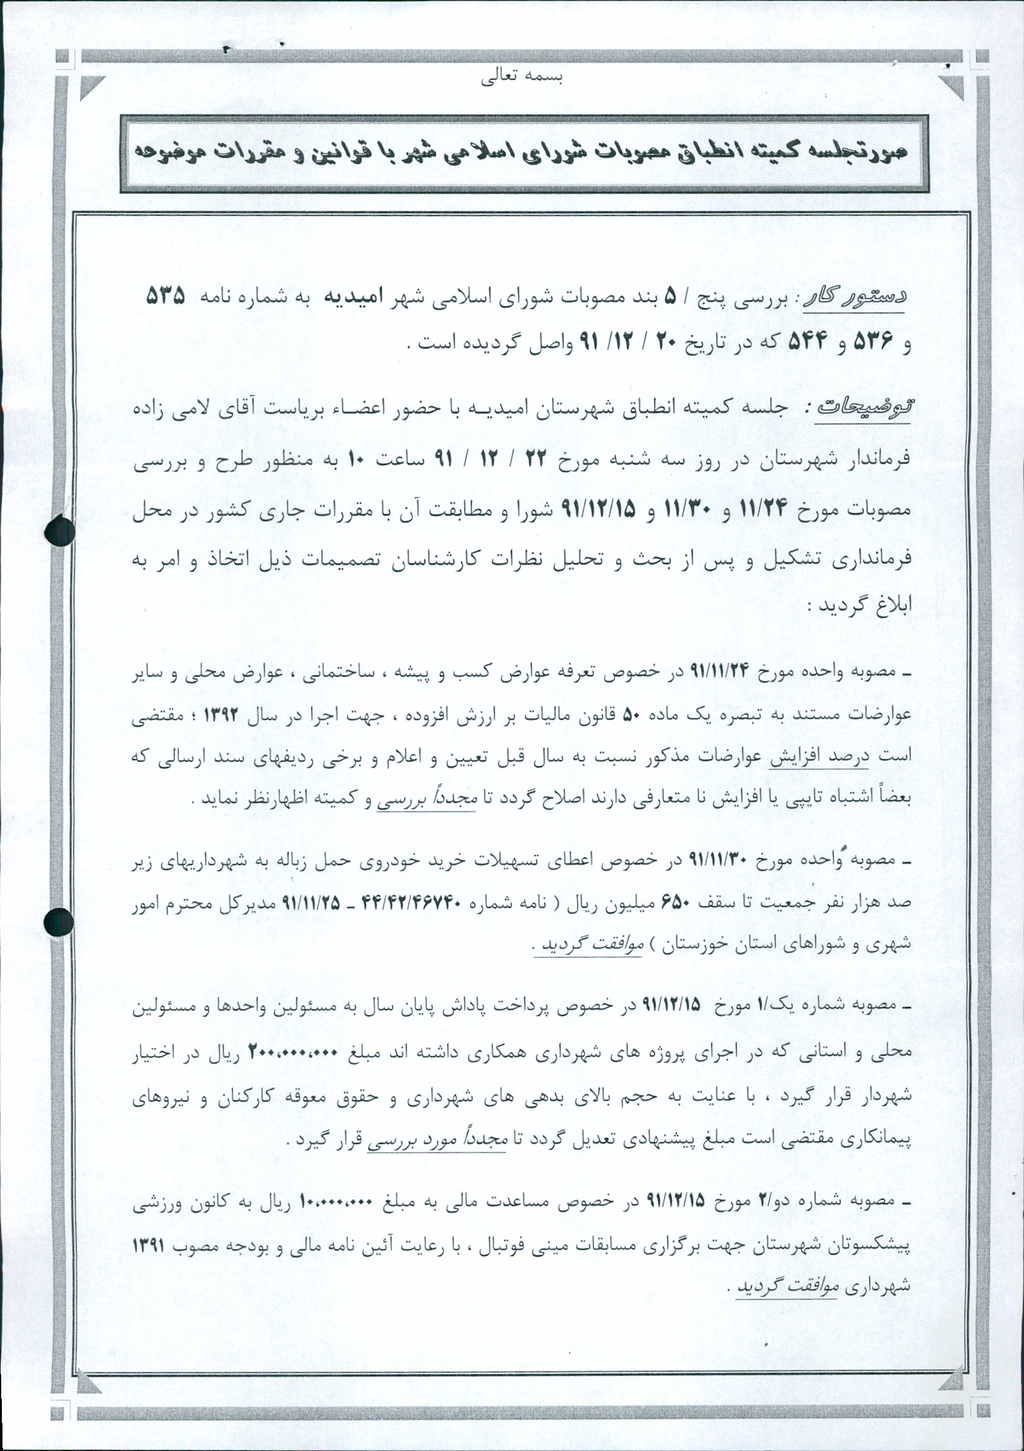 بسمه تعالی
صورتجلسه کمیته انطباق مصوبات شورای اسلامی شهر با قوانین و مقررات موضوعه
دستور کار : بررسی پنج / ۵ بند مصوبات شورای اسلامی شهر امیدیه به شماره نامه ۵۳۵
و ۵۳۶ و ۵۴۴ که در تاریخ ۲۰ / ۱۲ / ۹۱ واصل گردیده است .
توضیحات : جلسه کمیته انطباق شهرستان امیدیه با حضور اعضاء بریاست آقای لامی زاده
فرماندار شهرستان در روز سه شنبه مورخ ۲۲ / ۱۲ / ۹۱ ساعت ۱۰ به منظور طرح و بررسی
مصوبات مورخ ۱۱/۲۴ و ۱۱/۳۰ و ۹۱/۱۲/۱۵ شورا و مطابقت آن با مقررات جاری کشور در محل
فرمانداری تشکیل و پس از بحث و تحلیل نظرات کارشناسان تصمیمات ذیل اتخاذ و امر به
ابلاغ گردید :
ـ مصوبه واحده مورخ ۹۱/۱۱/۲۴ در خصوص تعرفه عوارض کسب و پیشه ، ساختمانی ، عوارض محلی و سایر
عوارضات مستند به تبصره یک ماده ۵۰ قانون مالیات بر ارزش افزوده ، جهت اجرا در سال ۱۳۹۲ ؛ مقتضی
است درصد افزایش عوارضات مذکور نسبت به سال قبل تعیین و اعلام و برخی ردیفهای سند ارسالی که
بعضاً اشتباه تایپی یا افزایش نا متعارفی دارند اصلاح گردد تا مجدداً بررسی و کمیته اظهارنظر نماید .
ـ مصوبه واحده مورخ ۹۱/۱۱/۳۰ در خصوص اعطای تسهیلات خرید خودروی حمل زباله به شهرداریهای زیر
صد هزار نفر جمعیت تا سقف ۶۵۰ میلیون ریال ( نامه شماره ۴۴/۴۲/۴۶۷۴۰ ـ ۹۱/۱۱/۲۵ مدیرکل محترم امور
شهری و شوراهای استان خوزستان ) موافقت گردید .
ـ مصوبه شماره یک/۱ مورخ ۹۱/۱۲/۱۵ در خصوص پرداخت پاداش پایان سال به مسئولین واحدها و مسئولین
محلی و استانی که در اجرای پروژه های شهرداری همکاری داشته اند مبلغ ۲۰۰،۰۰۰،۰۰۰ ریال در اختیار
شهردار قرار گیرد ، با عنایت به حجم بالای بدهی های شهرداری و حقوق معوقه کارکنان و نیروهای
پیمانکاری مقتضی است مبلغ پیشنهادی تعدیل گردد تا مجدداً مورد بررسی قرار گیرد .
ـ مصوبه شماره دو/۲ مورخ ۹۱/۱۲/۱۵ در خصوص مساعدت مالی به مبلغ ۱۰،۰۰۰،۰۰۰ ریال به کانون ورزشی
پیشکسوتان شهرستان جهت برگزاری مسابقات مینی فوتبال ، با رعایت آئین نامه مالی و بودجه مصوب ۱۳۹۱
شهرداری موافقت گردید .